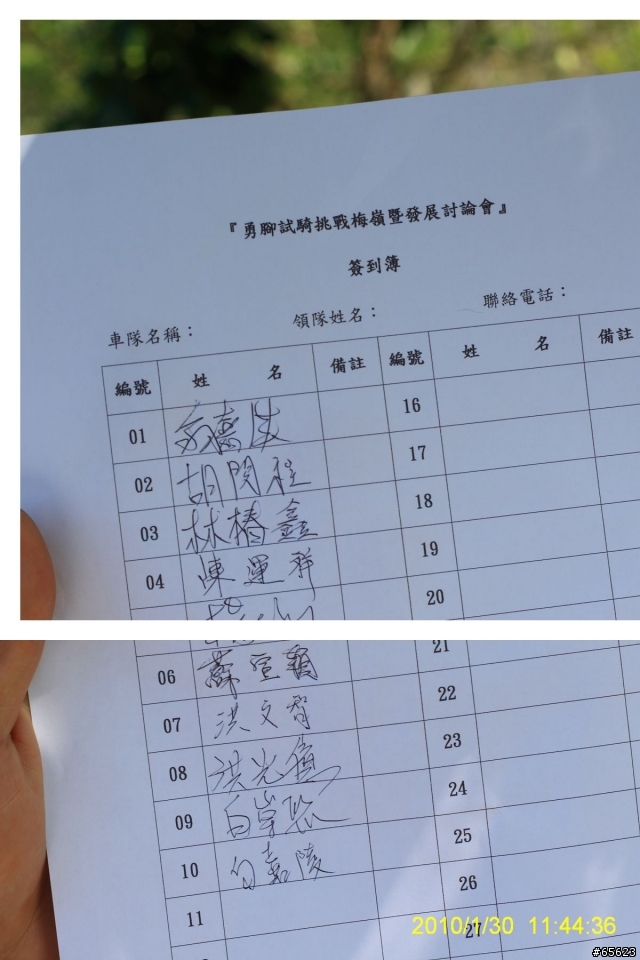 『勇腳試騎挑戰梅嶺暨發展討論會』
簽到簿
車隊名稱： 領隊姓名： 聯絡電話：
編號 姓 名 備註 編號 姓 名 備註
01 16
02 胡 17
03 林椿鑫 18
04 陳運祥 19
20
06 蘇宣 21
07 洪文智 22
08 洪光 23
09 白 24
10 嘉陵 25
11 26
27
2010/1/30 11:44:36
#65623